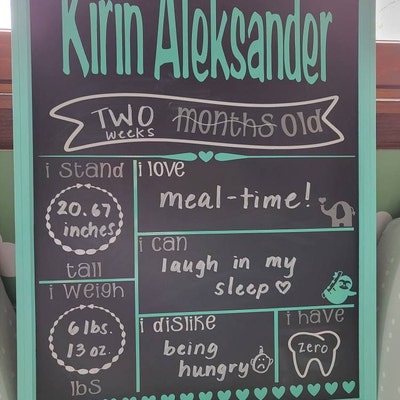 Kirin Aleksander
TWO weeks months old
i stand
20.67
inches
tall
i love
meal-time!
i can
laugh in my
sleep
i weigh
6 lbs.
13 oz.
lbs
i dislike
being
hungry
i have
zero